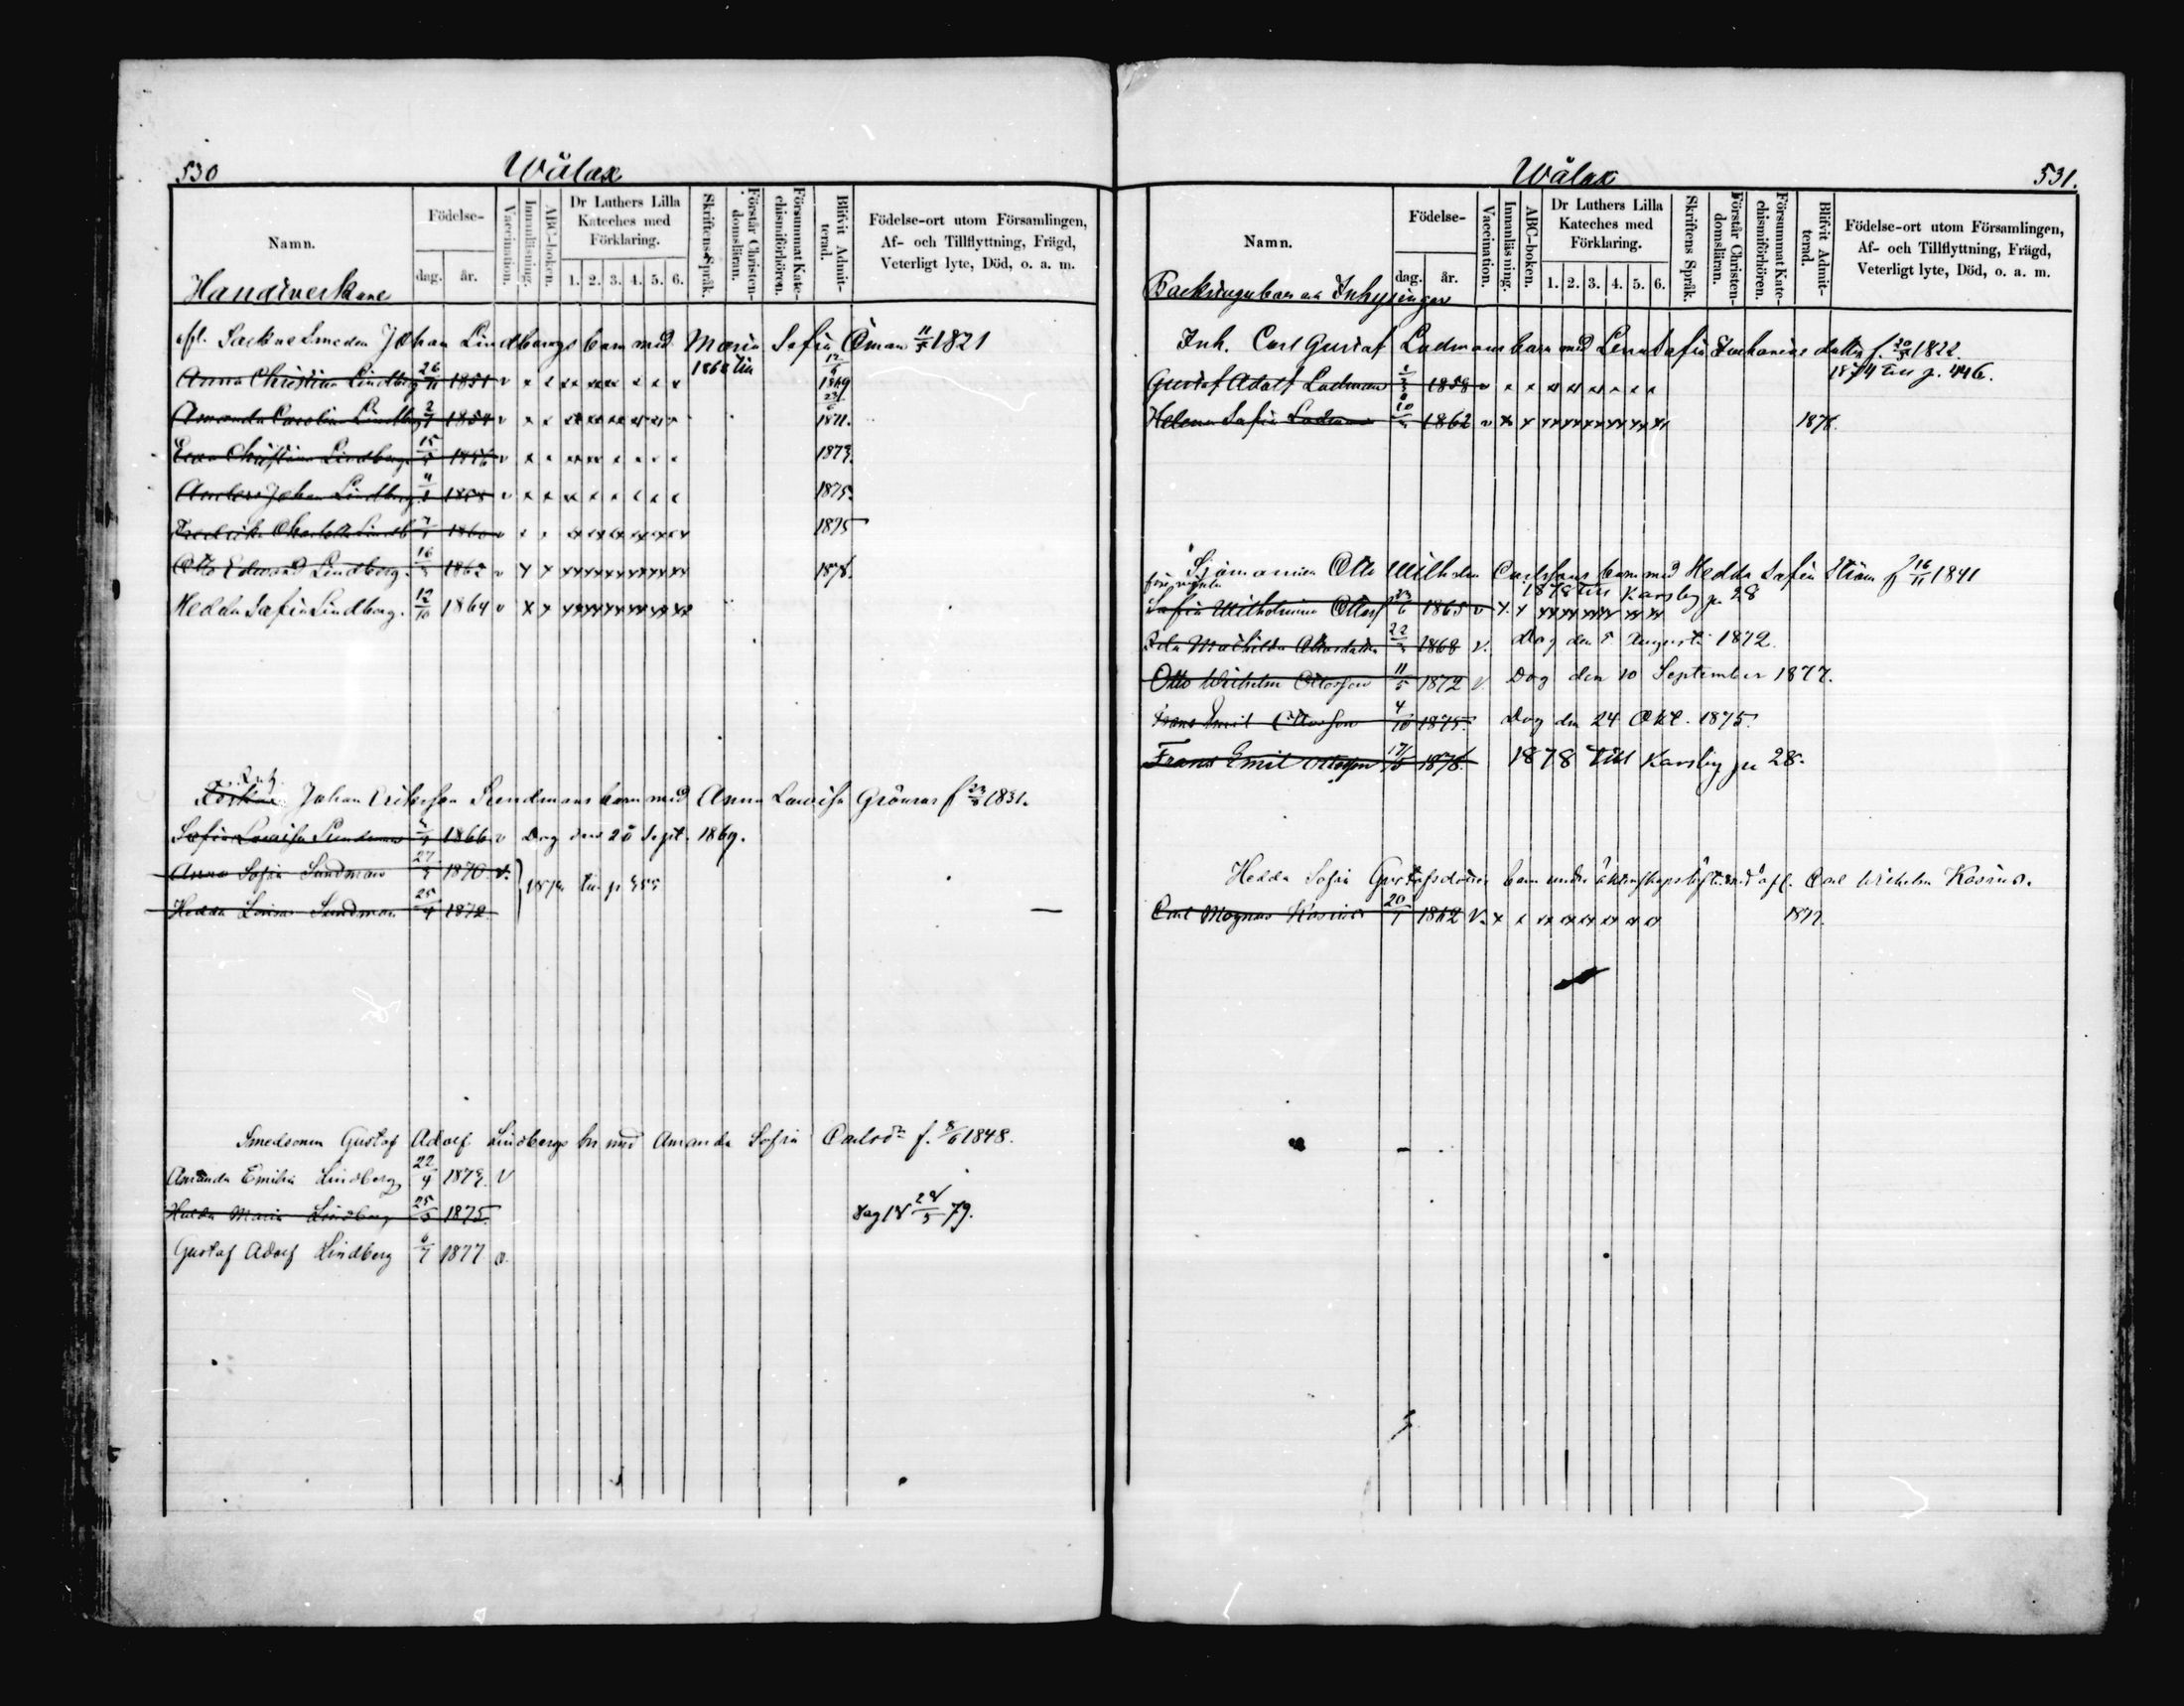 530
Wålax
Namn.
Födelse-
dag.
år.
Vaccination.
Innanläsning.
ABC-boken.
Dr Luthers Lilla
Kateches med
Förklaring.
1. 2. 3. 4. 5. 6.
Skriftens Språk.
Förstår Christen-
domsläran.
Försummat Kate-
chismiförhören.
Blifvit Admit-
terad.
Födelse-ort utom Församlingen,
Af- och Tillflyttning, Frägd,
Veterligt lyte, Död, o. a. m.
Handtverkare
afl. Sockne Smeden Johan Lindbergs barn med Maria Sofia Öman 11/5 1821
Anna Christina Lindberg 26/11 1851 v 1869
Amanda Carolina Lindberg 2/7 1854 v 1871.
Eva Christina Lindberg 15/5 1856 v 1873.
Anders Johan Lindberg 1858 v 1875.
Fredrika Charlotta Lindb 1860 v 1875
Otto Edward Lindberg. 16/3 1862 v 1878.
Hedda Sofia Lindberg. 12/10 1864 v
Johan Eriksson Sundmans barn med Anna Lovisa Grönros f 1831.
Sofia Lovisa Sundman 1866 v Dog den 20 Sept. 1869.
Anna Sofia Sundman 27/3 1870 v.
Hedda Lovisa Sundman 25/4 1872
Smedsonen Gustaf Adolf Lindbergs bn med Amanda Sofia Carlsdr f. 8/6 1848.
Amanda Emilia Lindberg 22/4 1873. v
Hulda Maria Lindberg 25/5 1875.
Gustaf Adolf Lindberg 6/7 1877 v.
531.
Wålax
Namn.
Födelse-
dag.
år.
Vaccination.
Innanläsning.
ABC-boken.
Dr Luthers Lilla
Kateches med
Förklaring.
1. 2. 3. 4. 5. 6.
Skriftens Språk.
Förstår Christen-
domsläran.
Försummat Kate-
chismiförhören.
Blifvit Admit-
terad.
Födelse-ort utom Församlingen,
Af- och Tillflyttning, Frägd,
Veterligt lyte, Död, o. a. m.
Inhysingar
Inh. Carl Gustaf Ladmans barn med Lena Sofia dotter f. 20/5 1822.
1874 till p. 446.
Gustaf Adolf Ladman 1858 v
Helena Sofia Ladman 1862 v 1878.
Sjömannen Otto Wilhelm Carlssons barn med Hedda Sofia Ström f 16/11 1841
1878 till Karsby p 28
Sofia Wilhelmina Ottosdr 1865 v
Mathilda Ottosdotter 22/3 1868 v. Dog den 5 Augusti 1872.
Otto Wilhelm Ottosson 11/5 1872 v. Dog den 10 September 1877.
Frans Emil Ottosson 4/10 1875. Dog den 24 Okt. 1875.
Frans Emil Ottosson 1876. 1878 till Karsby p 28.
Hedda Sofia Gustafsdotters barn under äktenskapslöfte med afl. Carl Wilhelm Kosina.
Carl Magnus Kosina 20/1 1862 v. 1877.